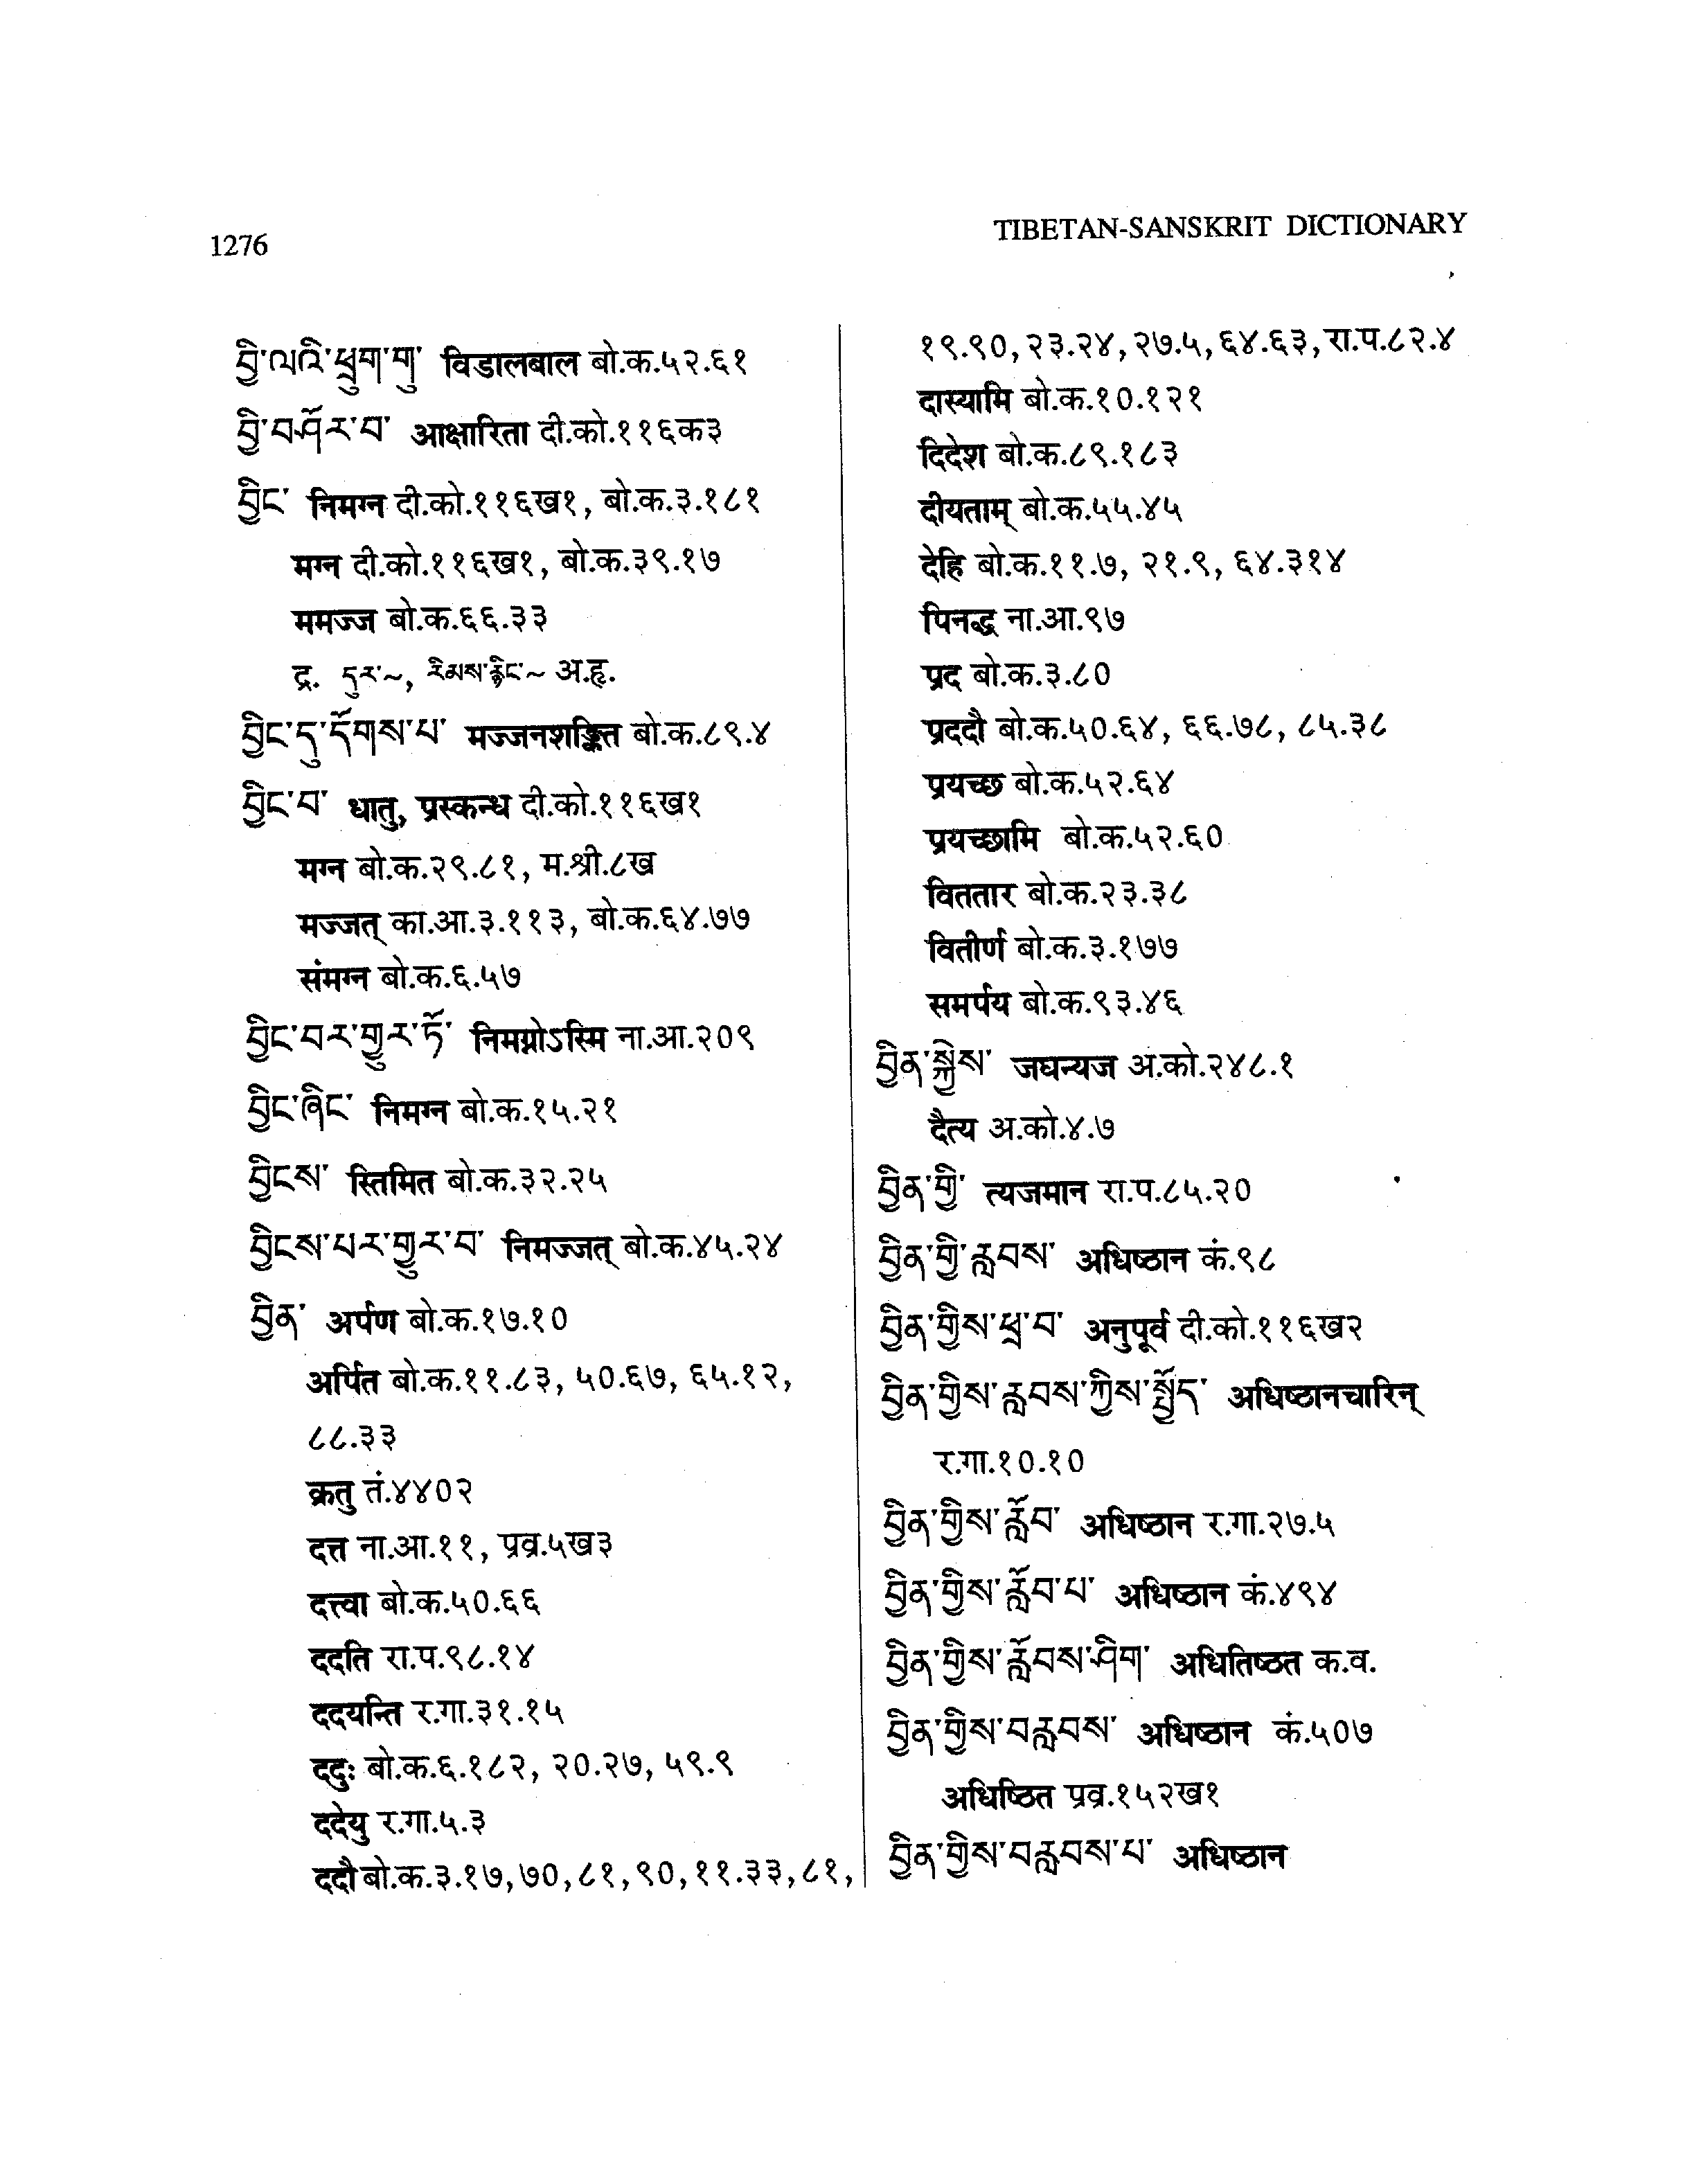 1276
TIBETAN-SANSKRIT DICTIONARY
བྱི་ལའི་ཕྲུག་གུ་ विडालबाल बो.क.५२.६१
བྱི་བ་ཤོར་བ་ आक्षारिता दी.को.११६क३
བྱིང་ निमग्न दी.को.११६ख१, बो.क.३.१८१
मग्न दी.को.११६ख१, बो.क.३९.१७
ममज्ज बो.क.६६.३३
द्र. དུར་~, རིམས་རྙིང་~ अ.हृ.
བྱིང་དུ་དོགས་པ་ मज्जनशङ्कित बो.क.८९.४
བྱིང་བ་ धातु, प्रस्कन्ध दी.को.११६ख१
मग्न बो.क.२९.८१, म.श्री.८ख
मज्जत् का.आ.३.११३, बो.क.६४.७७
संमग्न बो.क.६.५७
བྱིང་བར་གྱུར་ཏོ་ निमग्नोऽस्मि ना.आ.२०९
བྱིང་ཞིང་ निमग्न बो.क.१५.२१
བྱིངས་ स्तिमित बो.क.३२.२५
བྱིངས་པར་གྱུར་བ་ निमज्जत् बो.क.४५.२४
བྱིན་ अर्पण बो.क.१७.१०
अर्पित बो.क.११.८३, ५०.६७, ६५.१२,
८८.३३
क्रतु तं.४४०२
दत्त ना.आ.११, प्रव्र.५ख३
दत्त्वा बो.क.५०.६६
ददति रा.प.९८.१४
ददयन्ति र.गा.३१.१५
ददुः बो.क.६.१८२, २०.२७, ५९.९
ददेयु र.गा.५.३
ददौ बो.क.३.१७, ७०, ८१, ९०, ११.३३, ८१,
१९.९०, २३.२४, २७.५, ६४.६३, रा.प.८२.४
दास्यामि बो.क.१०.१२१
दिदेश बो.क.८९.१८३
दीयताम् बो.क.५५.४५
देहि बो.क.११.७, २१.९, ६४.३१४
पिनद्ध ना.आ.९७
प्रद बो.क.३.८०
प्रददौ बो.क.५०.६४, ६६.७८, ८५.३८
प्रयच्छ बो.क.५२.६४
प्रयच्छामि बो.क.५२.६०
विततार बो.क.२३.३८
वितीर्ण बो.क.३.१७७
समर्पय बो.क.९३.४६
བྱིན་སྐྱེས་ जघन्यज अ.को.२४८.१
दैत्य अ.को.४.७
བྱིན་གྱི་ त्यजमान रा.प.८५.२०
བྱིན་གྱི་རླབས་ अधिष्ठान कं.९८
བྱིན་གྱིས་ཕྲ་བ་ अनुपूर्व दी.को.११६ख२
བྱིན་གྱིས་རླབས་ཀྱིས་སྤྱོད་ अधिष्ठानचारिन्
र.गा.१०.१०
བྱིན་གྱིས་རློབ་ अधिष्ठान र.गा.२७.५
བྱིན་གྱིས་རློབ་པ་ अधिष्ठान कं.४९४
བྱིན་གྱིས་རློབས་ཤིག་ अधितिष्ठत क.व.
བྱིན་གྱིས་བརླབས་ अधिष्ठान कं.५०७
अधिष्ठित प्रव्र.१५२ख१
བྱིན་གྱིས་བརླབས་པ་ अधिष्ठान